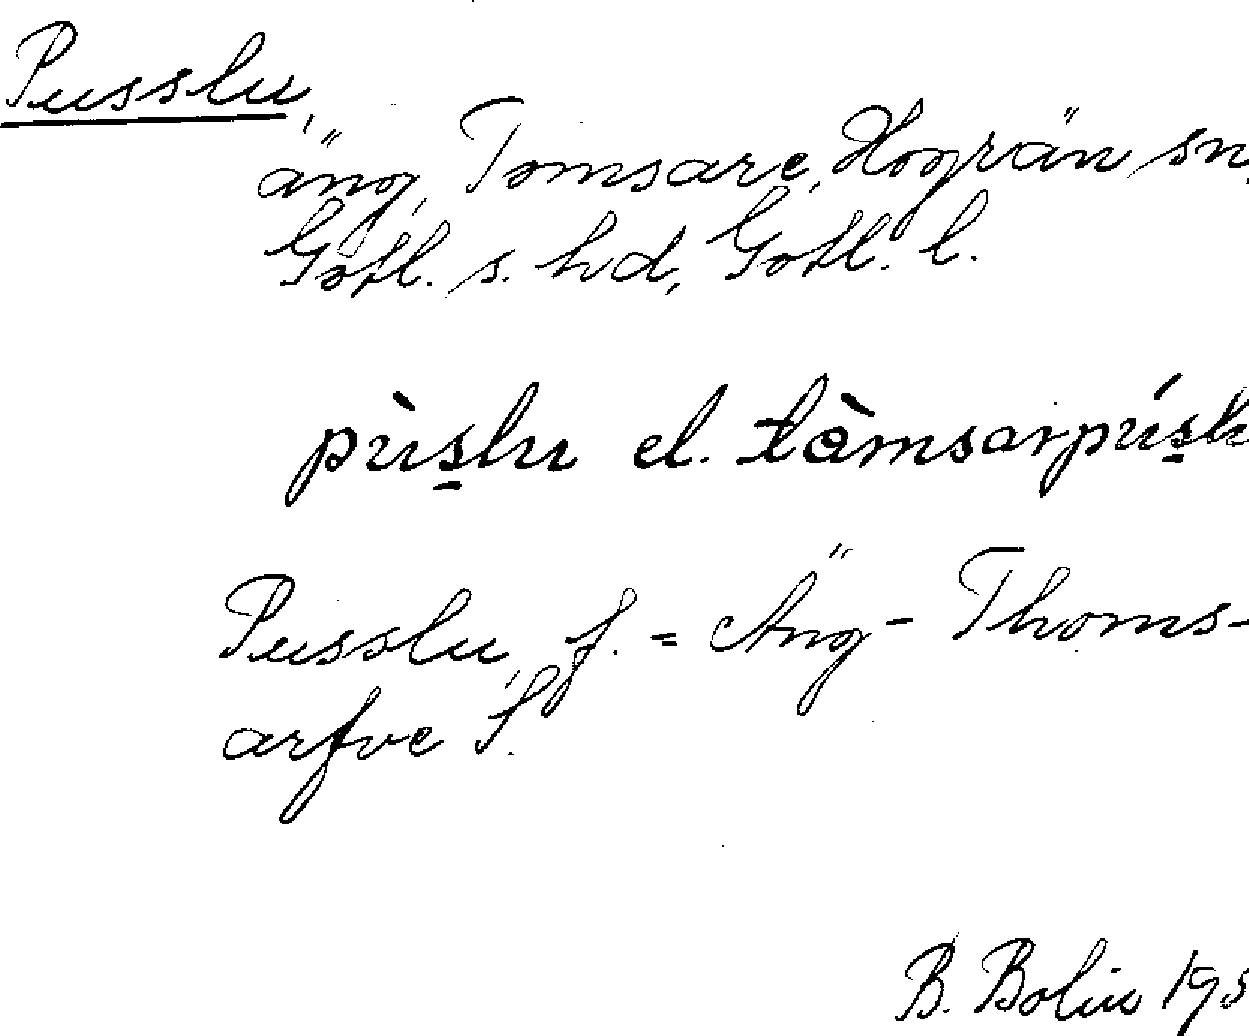 Pusslu,
äng, Tomsare, Hogrän sn,
Gotl. s. hd, Gotl. l.
pùs̱lu el. tåmsarpús̱lu
Pusslu, f. = Äng - Thoms-
arfve S.
B. Bolin 195